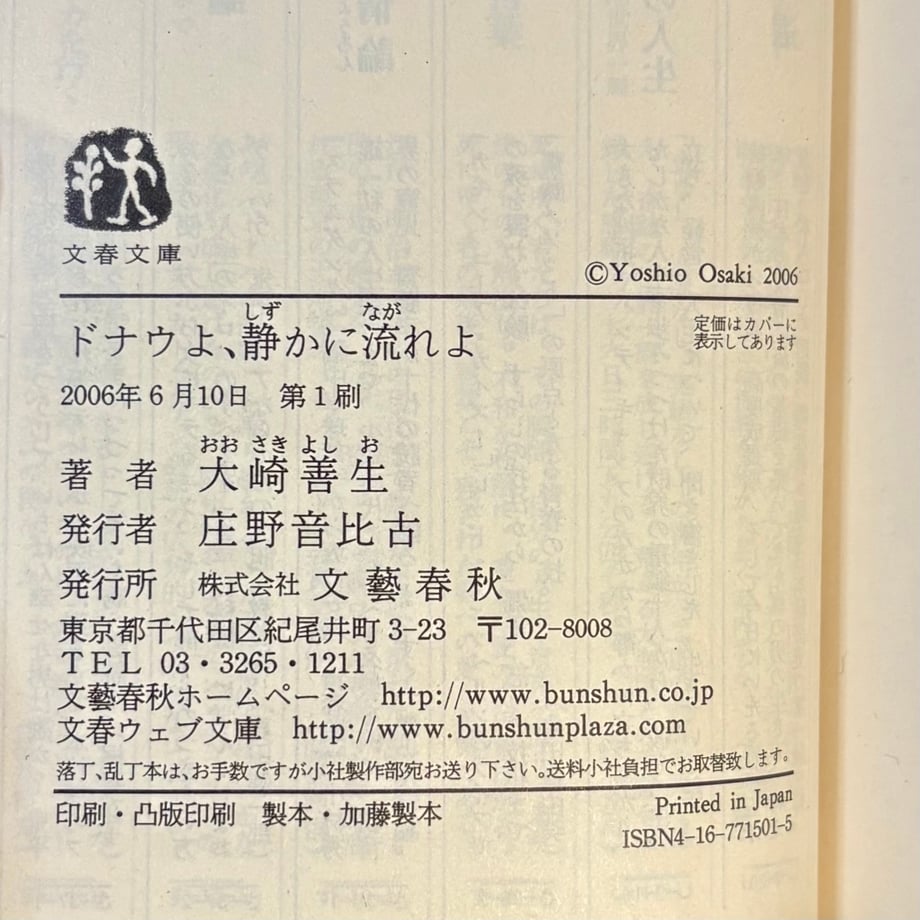 文春文庫
©Yoshio Osaki 2006
しず なが
ドナウよ、静かに流れよ
定価はカバーに
表示してあります
2006年6月10日 第1刷
おお さき よし お
著 者 大崎善生
発行者 庄野音比古
発行所 株式会社 文藝春秋
東京都千代田区紀尾井町 3-23 〒102-8008
TEL 03・3265・1211
文藝春秋ホームページ http://www.bunshun.co.jp
文春ウェブ文庫 http://www.bunshunplaza.com
落丁、乱丁本は、お手数ですが小社製作部宛お送り下さい。送料小社負担でお取替致します。
印刷・凸版印刷 製本・加藤製本
Printed in Japan
ISBN4-16-771501-5